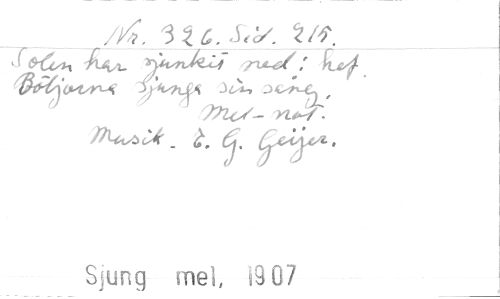 Nr. 326. Sid. 215.
Solen har sjunkit ned i haf.
Böljorna sjunga sin sång.
Mel-not.
Musik - E. G. Geijer.
Sjung mel, 1907